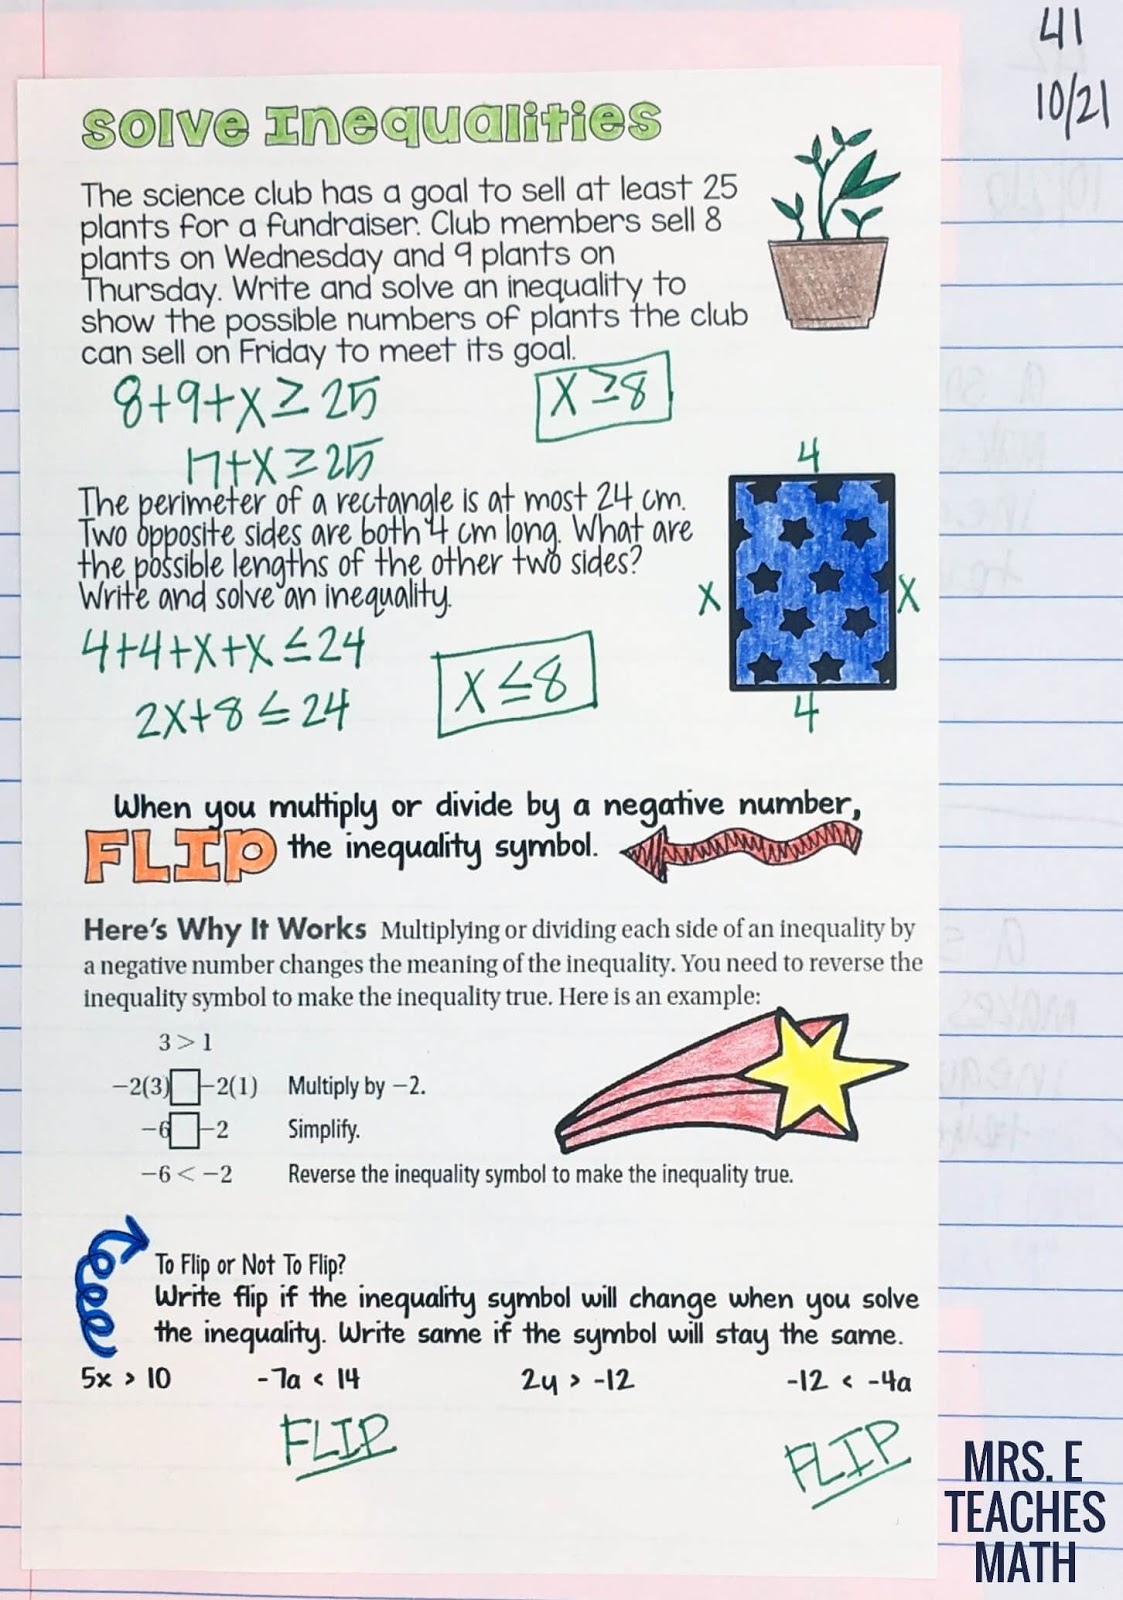 41
10/21
Solve Inequalities
The science club has a goal to sell at least 25
plants for a fundraiser. Club members sell 8
plants on Wednesday and 9 plants on
Thursday. Write and solve an inequality to
show the possible numbers of plants the club
can sell on Friday to meet its goal.
8+9+x≥25
x≥8
17+x≥25
The perimeter of a rectangle is at most 24 cm.
Two opposite sides are both 4 cm long. What are
the possible lengths of the other two sides?
Write and solve an inequality.
4
x x
4
4+4+x+x≤24
2x+8≤24
x≤8
When you multiply or divide by a negative number,
FLIP the inequality symbol.
Here's Why It Works Multiplying or dividing each side of an inequality by
a negative number changes the meaning of the inequality. You need to reverse the
inequality symbol to make the inequality true. Here is an example:
3 > 1
−2(3) □ −2(1) Multiply by −2.
−6 □ −2 Simplify.
−6 < −2 Reverse the inequality symbol to make the inequality true.
To Flip or Not To Flip?
Write flip if the inequality symbol will change when you solve
the inequality. Write same if the symbol will stay the same.
5x > 10 -7a < 14 2y > -12 -12 < -4a
FLIP FLIP
MRS. E
TEACHES
MATH